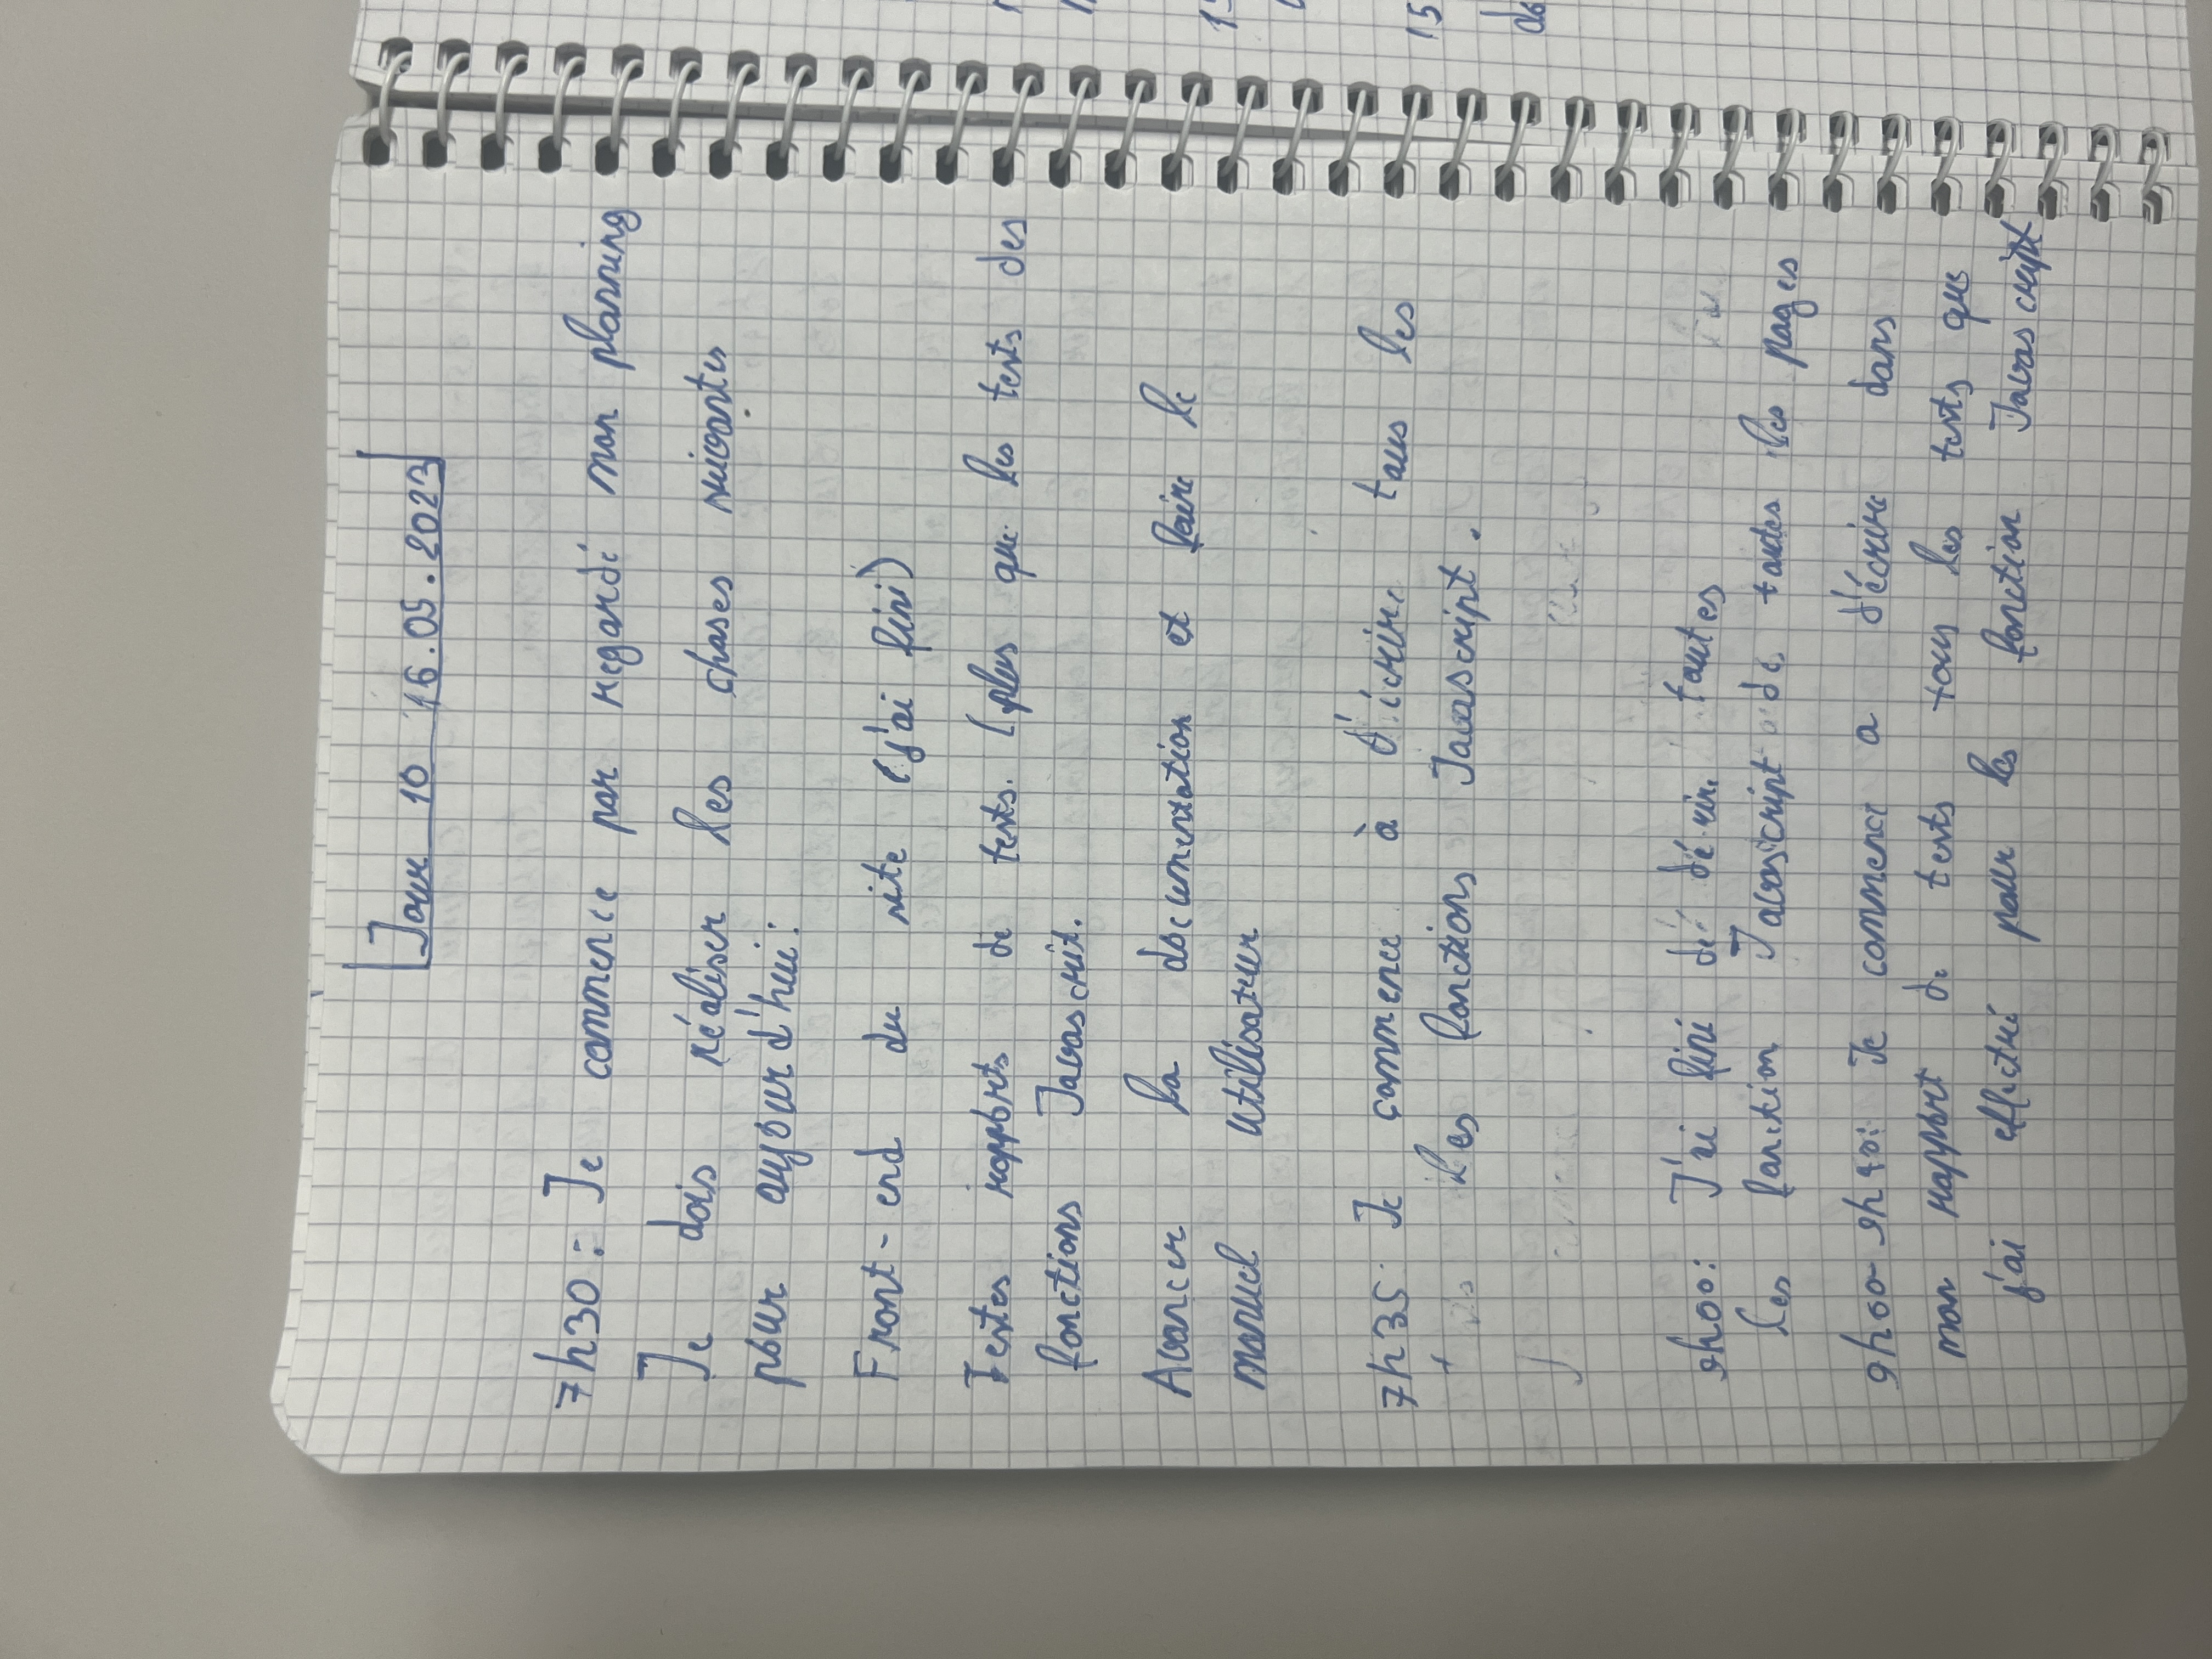 Jour 10 16.05.2023
7h30 : Je commence par regardé mon planning
Je dois réaliser les choses suivantes
pour aujourd'hui :
Front-end du site (j'ai fini)
Testes rapports de tests. (plus que les tests des
fonctions Javascrit.
Avancer la documentation et faire le
manuel utilisateur
7h35 Je commence à d'écrire tous les
les fonctions Javascript.
9h00 : J'ai fini de toutes
les fonction Javascript de toutes les pages
9h00- 9h40: Je commence a d'écrire dans
mon rapport de tests tous les tests que
j'ai effectué pour les fonction Javascript
15
15